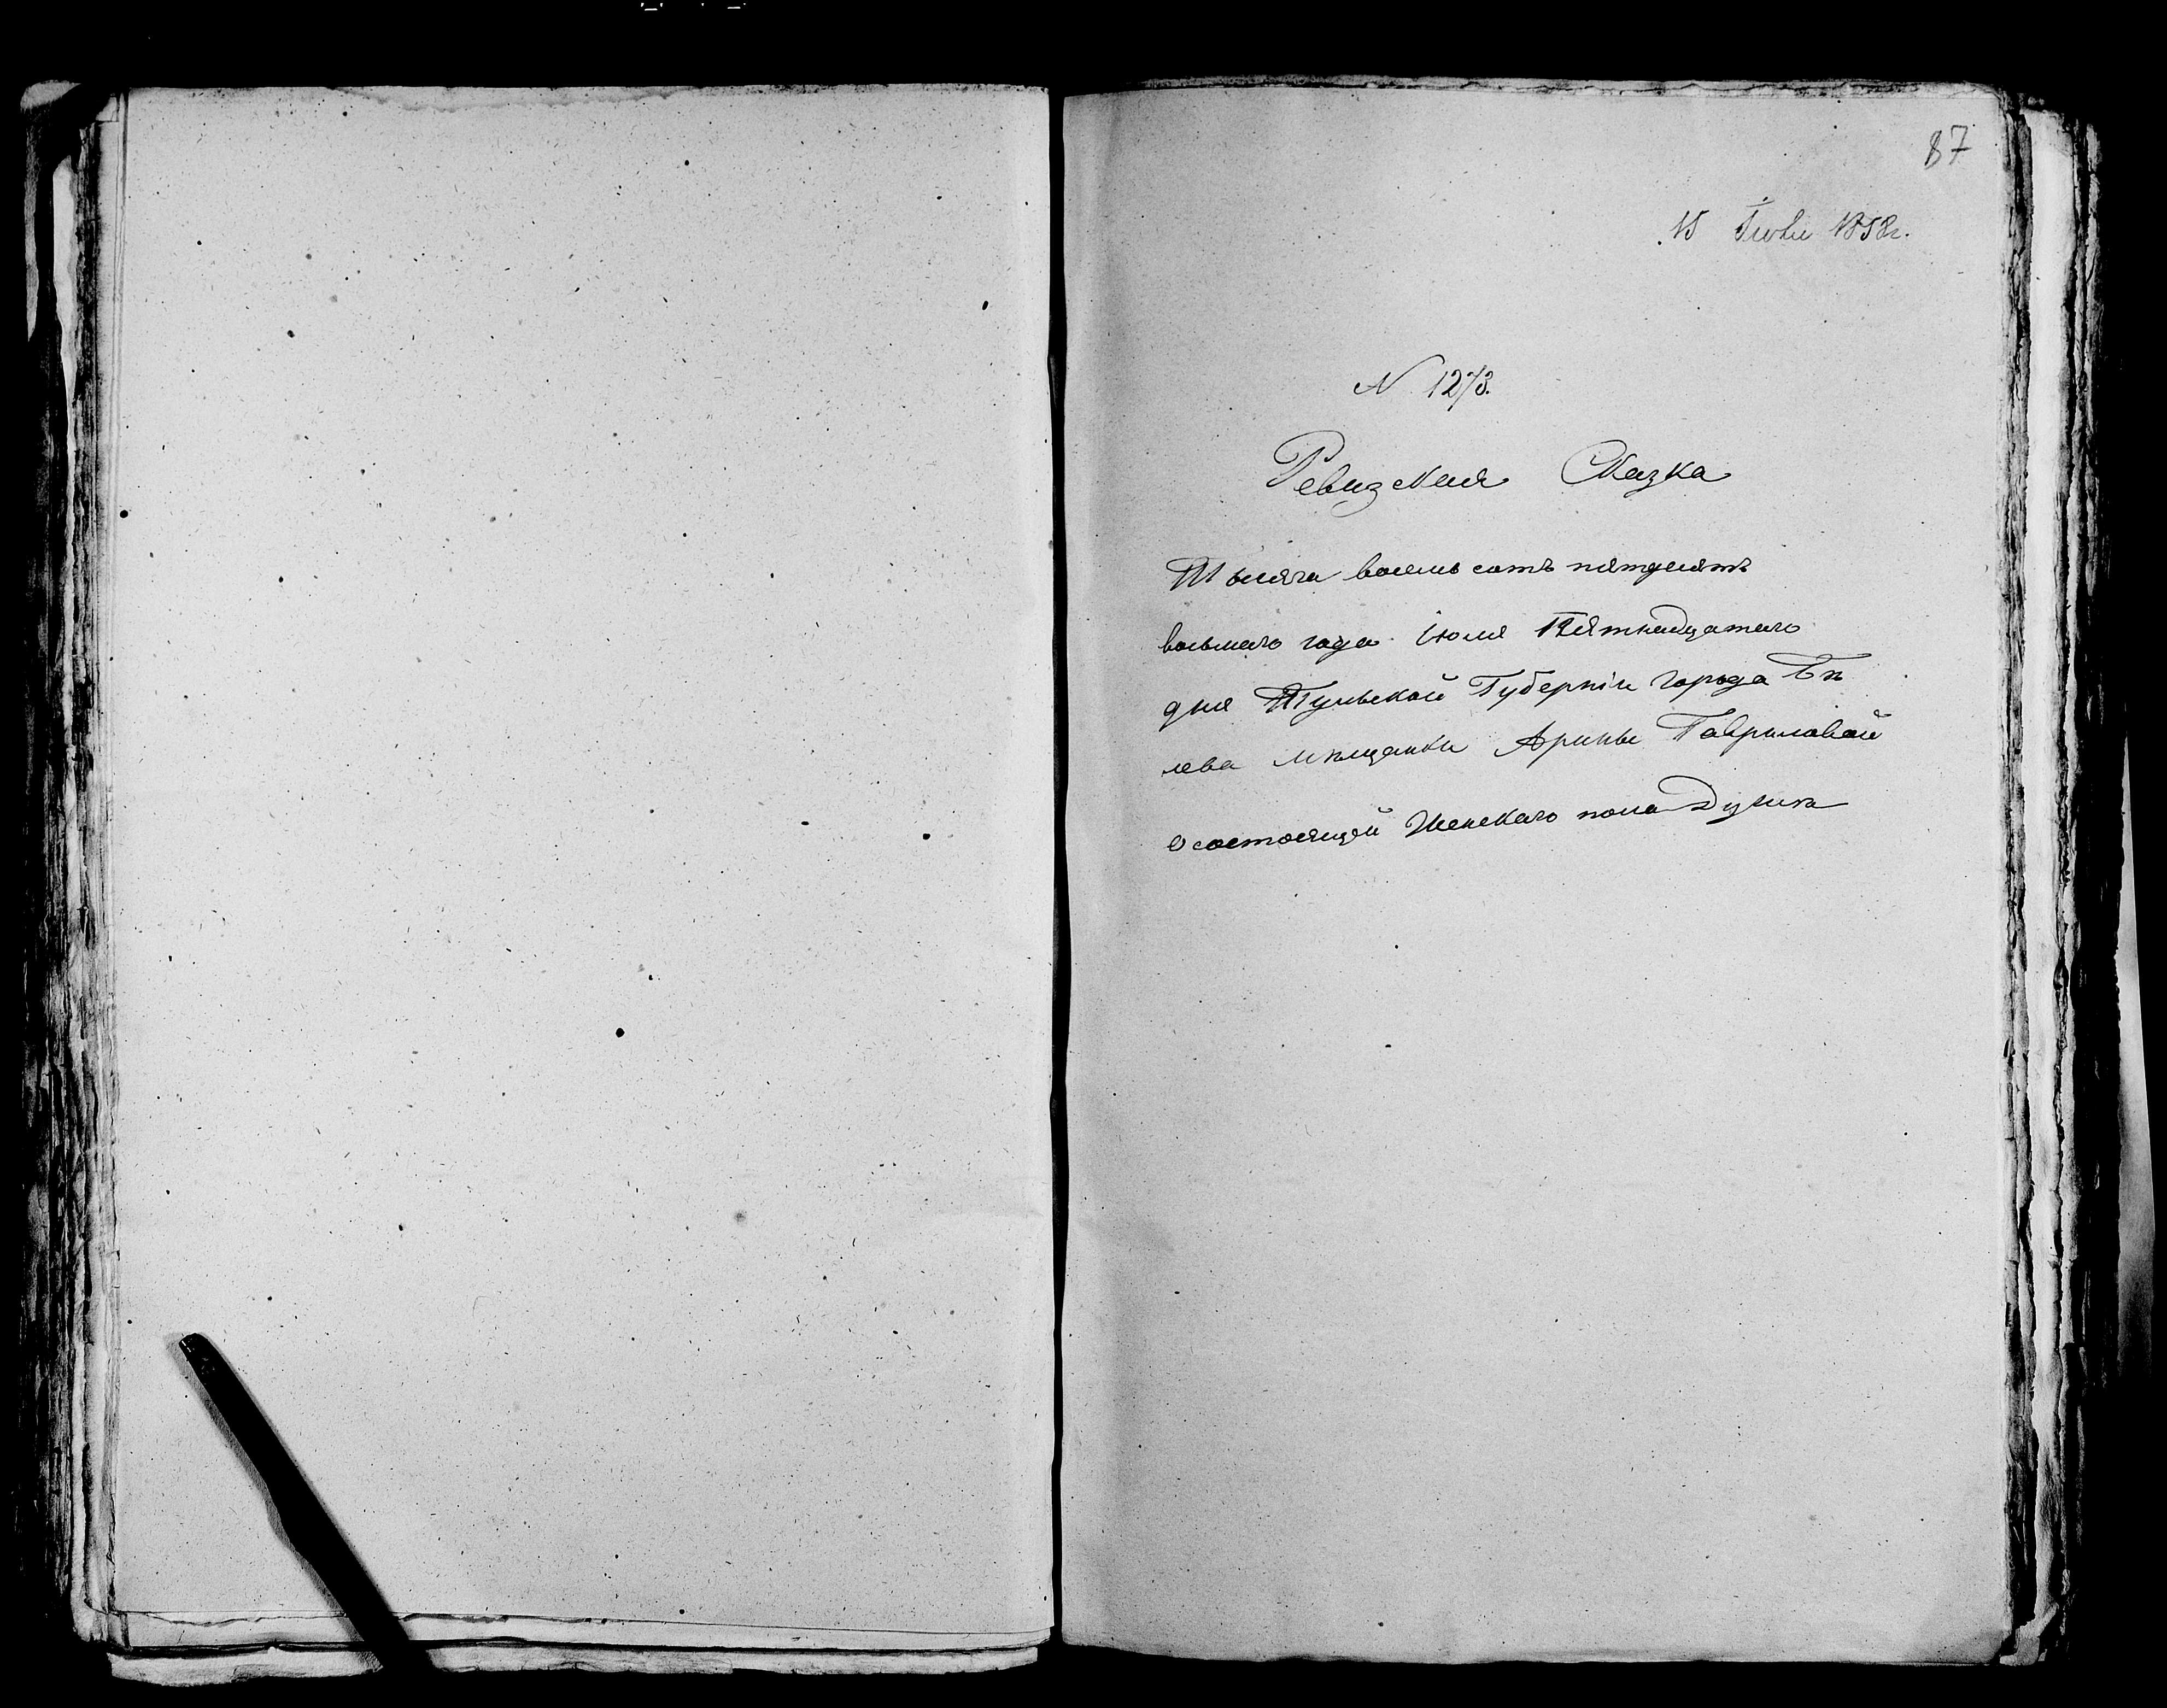 87
15 Июля 1858 г.
N 1273.
Ревизская Сказка
Тысяча восемь сотъ пятдесятъ
восьмаго года Іюля Пятнадцатаго
дня Тульской Губерніи Города Бѣ
лева мѣщанки Арины Гавриловой
о состоящей Женскаго пола Душѣ